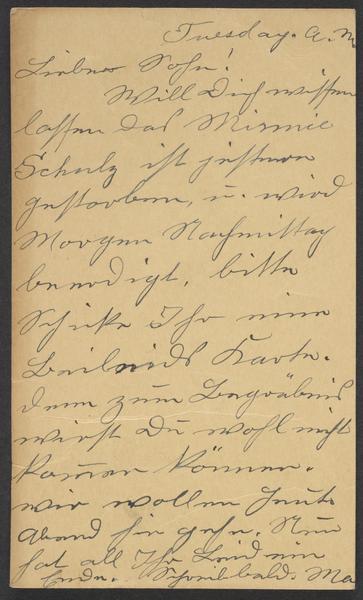 Tuesday. A. M.
Lieber Sohn!
Will Dich wissen
lassen das Minnie
Schulz ist gestern
gestorben, u. wird
Morgen Nachmittag
beerdigt, bitte
Schicke Ihr eine
Beileids Karte.
denn zum Begräbnis
wirst Du wohl nicht
kommen können.
wir wollen heute
Abend hin gehn. Nun
hat all Ihr Leid ein
Ende. Schreib bald. Ma